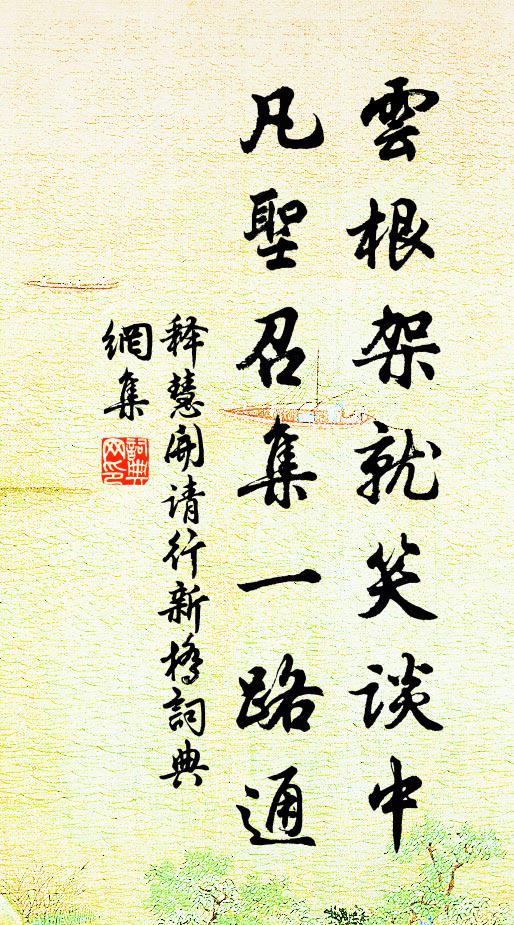 雲根架就笑談中
凡聖召集一路通
释慧開请行新橋詞典
網集
詞典網印